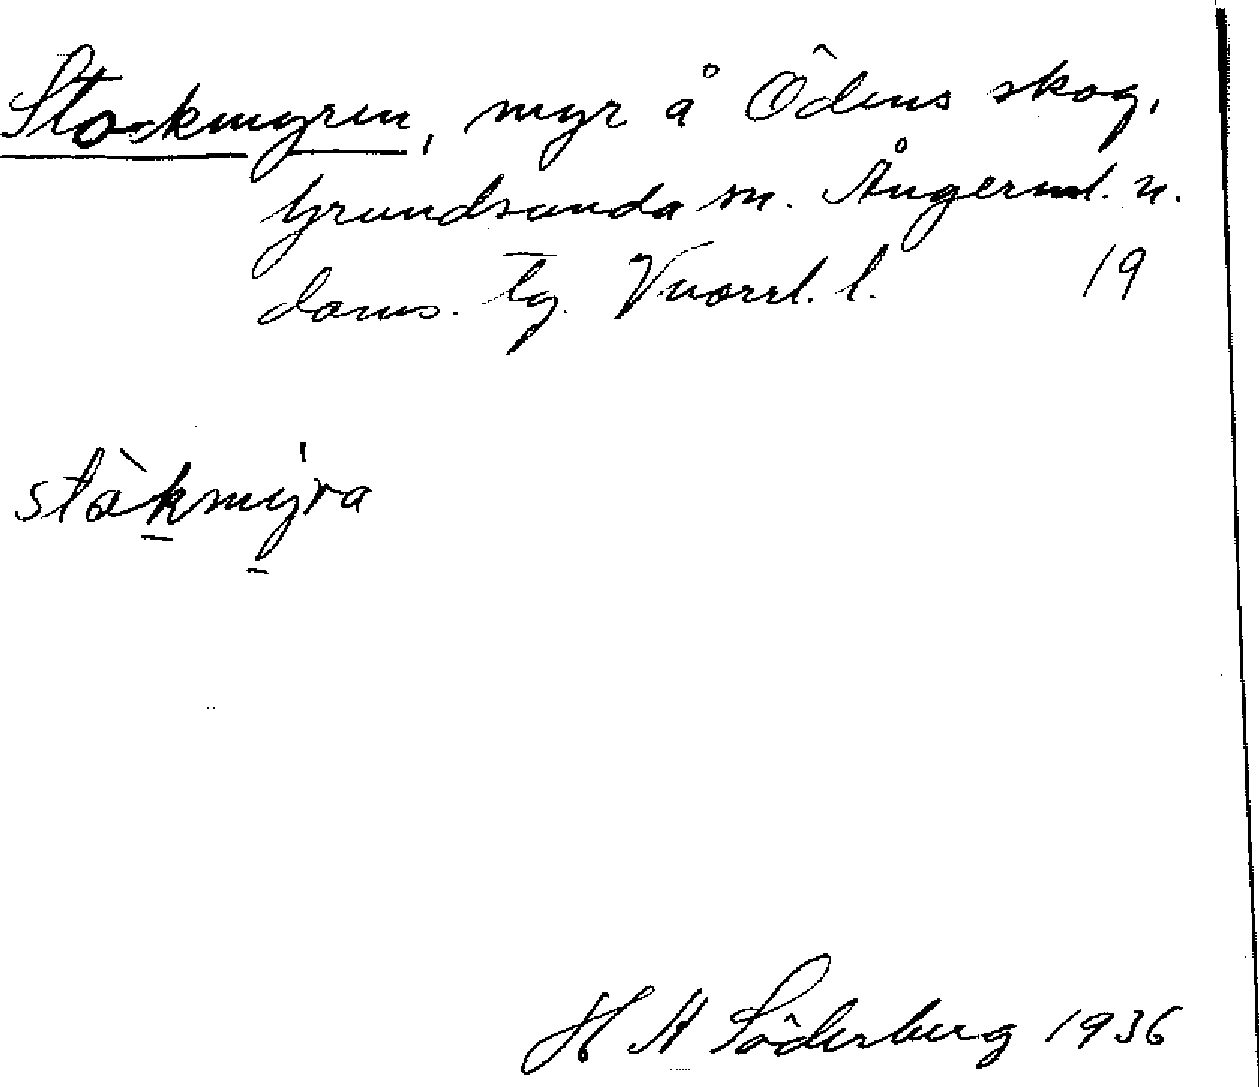 Stockmyren, myr å Ödens skog,
Grundsunda sn. Ångerml. n.
doms. tg. Vnorrl. l. 19
ståkmyra
H A Söderberg 1936